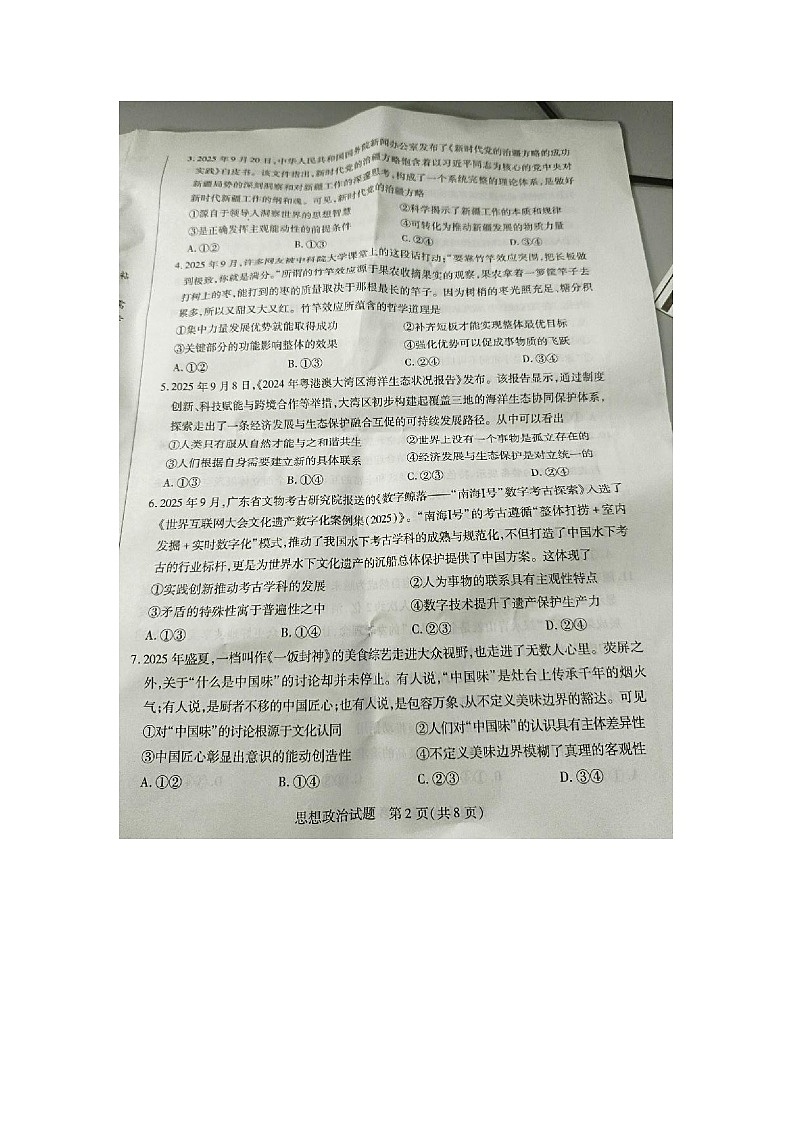 3. 2025年9月20日,中华人民共和国国务院新闻办公室发布了《新时代党的治疆方略的成功
实践》白皮书。该文件指出,新时代党的治疆方略饱含着以习近平同志为核心的党中央对
新疆局势的深刻洞察和对新疆工作的深邃思考,构成了一个系统完整的理论体系,是做好
新时代新疆工作的纲和魂。可见,新时代党的治疆方略
①源自于领导人洞察世界的思想智慧 ②科学揭示了新疆工作的本质和规律
③是正确发挥主观能动性的前提条件 ④可转化为推动新疆发展的物质力量
A.①② B.①③ C.②④ D.③④
4. 2025年9月,许多网友被中科院大学课堂上的这段话打动:“要靠竹竿效应突围,把长板做
到极致,你就是满分。”所谓的竹竿效应源于果农收摘果实的观察,果农拿着一箩筐竿子去
打树上的枣,能打到的枣的质量取决于那根最长的竿子。因为树梢的枣光照充足、糖分积
累多,所以又甜又大又红。竹竿效应所蕴含的哲学道理是
①集中力量发展优势就能取得成功 ②补齐短板才能实现整体最优目标
③关键部分的功能影响整体的效果 ④强化优势可以促成事物质的飞跃
A.①② B.①③ C.②④ D.③④
5. 2025年9月8日,《2024年粤港澳大湾区海洋生态状况报告》发布。该报告显示,通过制度
创新、科技赋能与跨境合作等举措,大湾区初步构建起覆盖三地的海洋生态协同保护体系,
探索走出了一条经济发展与生态保护融合互促的可持续发展路径。从中可以看出
①人类只有服从自然才能与之和谐共生 ②世界上没有一个事物是孤立存在的
③人们根据自身需要建立新的具体联系 ④经济发展与生态保护是对立统一的
A.①③ B.①④ C.②③ D.②④
6. 2025年9月,广东省文物考古研究院报送的《数字鲸落——“南海Ⅰ号”数字考古探索》入选了
《世界互联网大会文化遗产数字化案例集(2025)》。“南海Ⅰ号”的考古遵循“整体打捞+室内
发掘+实时数字化”模式,推动了我国水下考古学科的成熟与规范化,不但打造了中国水下考
古的行业标杆,更是为世界水下文化遗产的沉船总体保护提供了中国方案。这体现了
①实践创新推动考古学科的发展 ②人为事物的联系具有主观性特点
③矛盾的特殊性寓于普遍性之中 ④数字技术提升了遗产保护生产力
A.①③ B.①④ C.②③ D.②④
7. 2025年盛夏,一档叫作《一饭封神》的美食综艺走进大众视野,也走进了无数人心里。荧屏之
外,关于“什么是中国味”的讨论却并未停止。有人说,“中国味”是灶台上传承千年的烟火
气;有人说,是厨者不移的中国匠心;也有人说,是包容万象、从不定义美味边界的豁达。可见
①对“中国味”的讨论根源于文化认同 ②人们对“中国味”的认识具有主体差异性
③中国匠心彰显出意识的能动创造性 ④不定义美味边界模糊了真理的客观性
A.①② B.①④ C.②③ D.③④
思想政治试题 第2页(共8页)